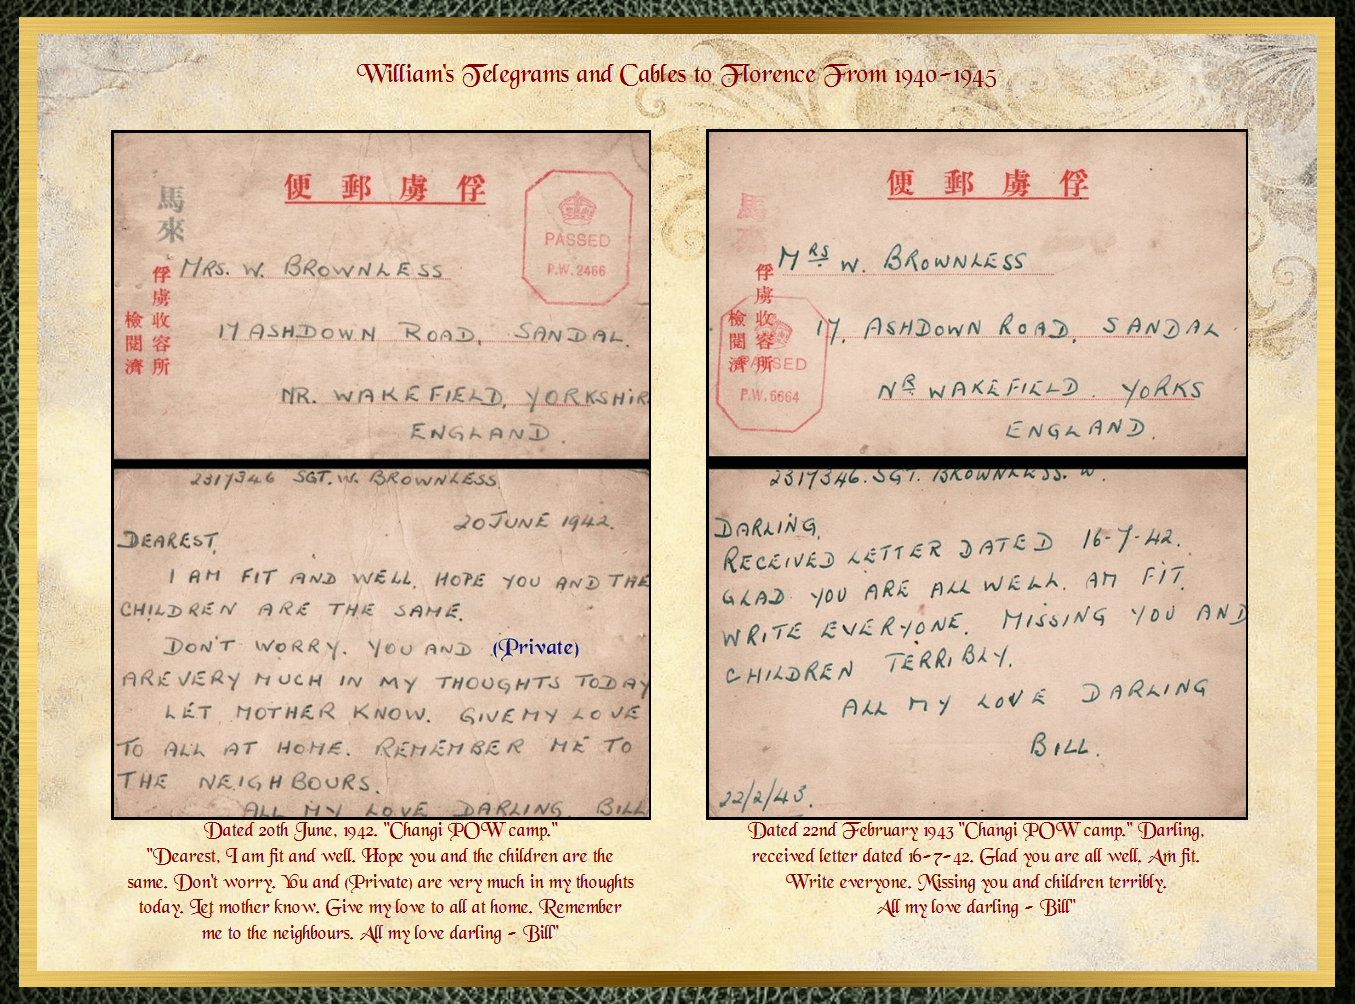 William's Telegrams and Cables to Florence From 1940-1945
便郵虜俘
馬來
PASSED
P.W. 2466
俘虜收容所
檢閲濟
MRS. W. BROWNLESS
17 ASHDOWN ROAD, SANDAL.
NR. WAKEFIELD, YORKSHIR
ENGLAND.
2317346 SGT. W. BROWNLESS
20 JUNE 1942.
DEAREST,
I AM FIT AND WELL. HOPE YOU AND THE
CHILDREN ARE THE SAME.
DON'T WORRY. YOU AND (Private)
ARE VERY MUCH IN MY THOUGHTS TODAY
LET MOTHER KNOW. GIVE MY LOVE
TO ALL AT HOME. REMEMBER ME TO
THE NEIGHBOURS.
ALL MY LOVE DARLING. BILL
Dated 20th June, 1942. "Changi POW camp."
"Dearest, I am fit and well. Hope you and the children are the
same. Don't worry. You and (Private) are very much in my thoughts
today. Let mother know. Give my love to all at home. Remember
me to the neighbours. All my love darling - Bill"
便郵虜俘
馬來
俘虜收容所
檢閲濟
PASSED
P.W. 6664
MRS W. BROWNLESS
17, ASHDOWN ROAD, SANDAL
NR WAKEFIELD. YORKS
ENGLAND.
2317346. SGT. BROWNLESS. W.
DARLING,
RECEIVED LETTER DATED 16-7-42.
GLAD YOU ARE ALL WELL. AM FIT.
WRITE EVERYONE. MISSING YOU AND
CHILDREN TERRIBLY.
ALL MY LOVE DARLING
BILL.
22/2/43.
Dated 22nd February 1943 "Changi POW camp." Darling,
received letter dated 16-7-42. Glad you are all well, Am fit.
Write everyone. Missing you and children terribly.
All my love darling - Bill"